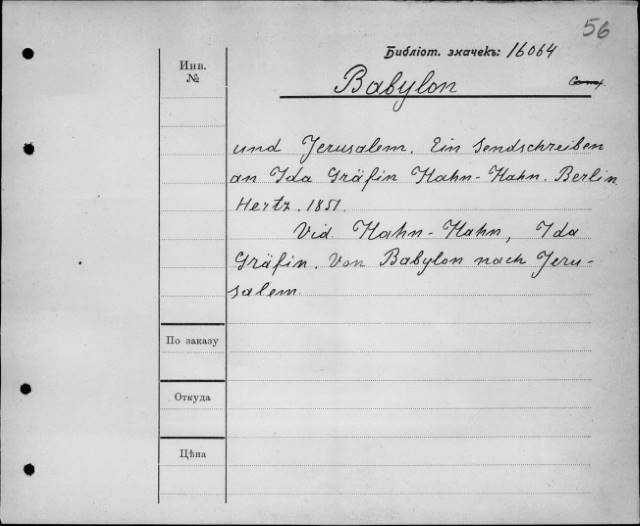 56
Библіот. значекъ: 16064
Инв.
№
Babylon
und Jerusalem. Ein Sendschreiben
an Ida Gräfin Hahn-Hahn. Berlin
Hertz. 1851.
Vid. Hahn-Hahn, Ida
Gräfin. Von Babylon nach Jeru-
salem.
По заказу
Откуда
Цѣна